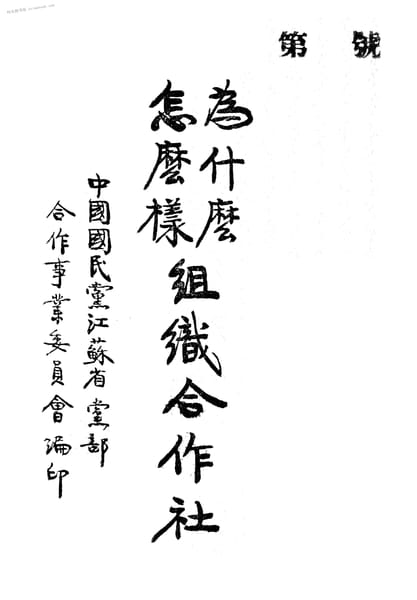 第　號
為什麼
怎麼樣
組織合作社
中國國民黨江蘇省黨部
合作事業委員會編印